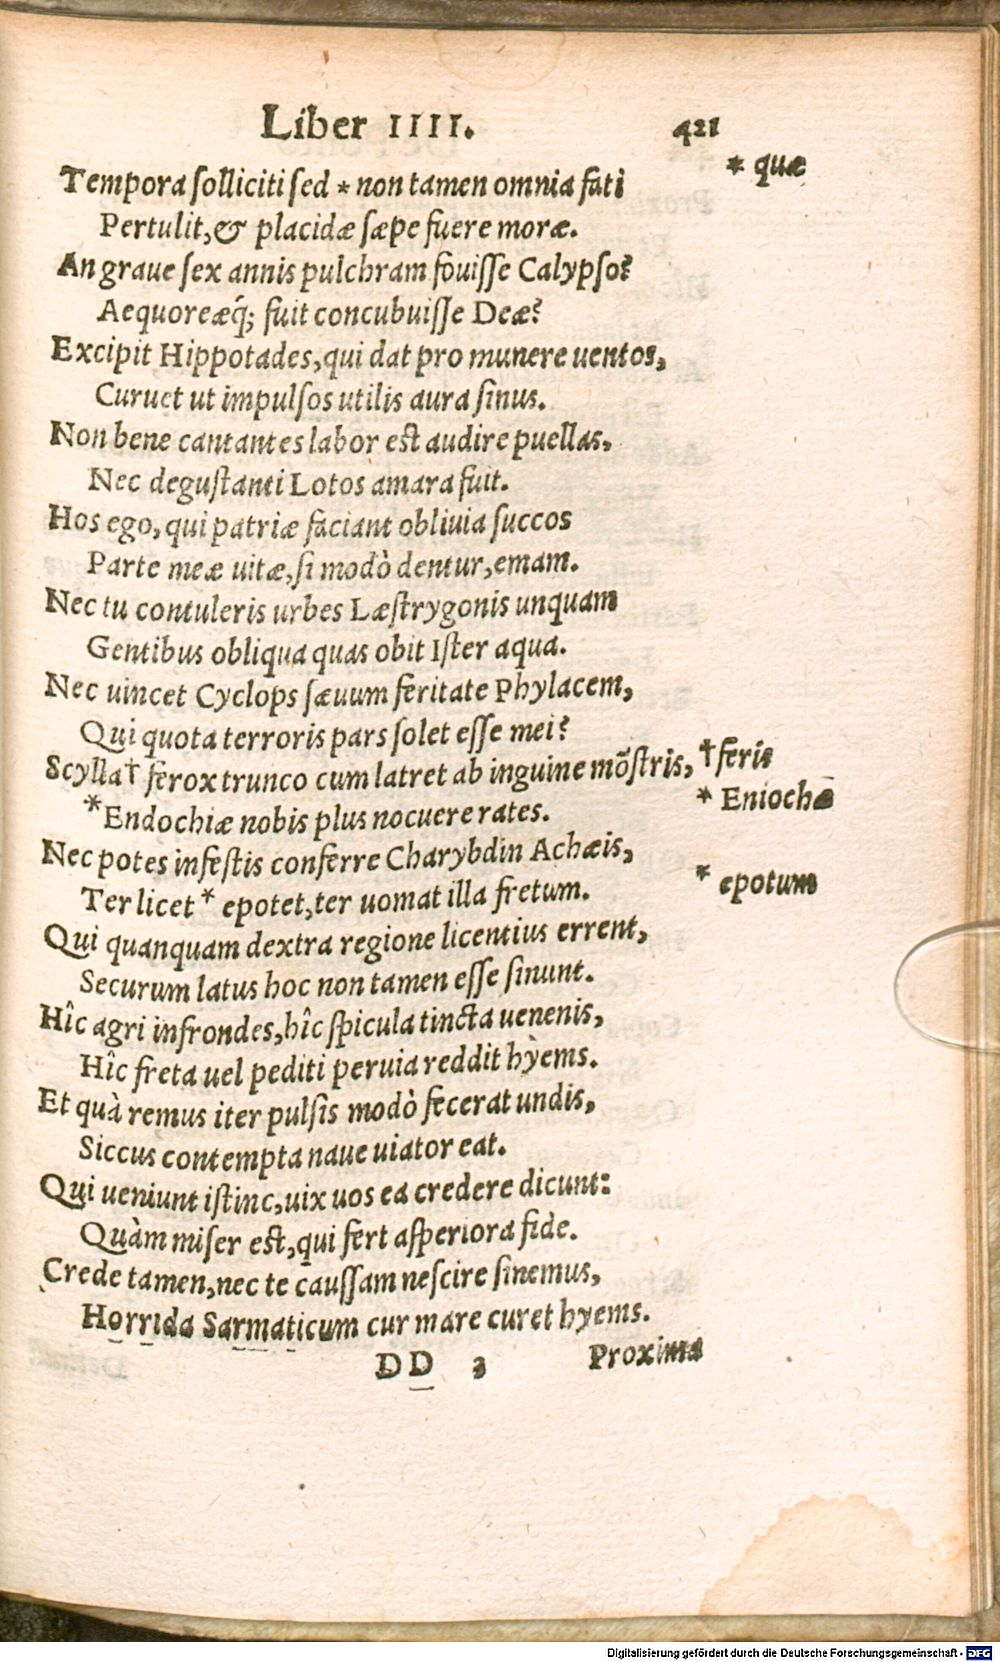 Liber IIII. 421
Tempora solliciti sed * non tamen omnia fati * quæ
Pertulit, & placidæ sæpe fuere moræ.
An graue sex annis pulchram fouisse Calypso?
Aequoreæq́; fuit concubuisse Deæ?
Excipit Hippotades, qui dat pro munere uentos,
Curuet ut impulsos utilis aura sinus.
Non bene cantantes labor est audire puellas,
Nec degustanti Lotos amara fuit.
Hos ego, qui patriæ faciant obliuia succos
Parte meæ uitæ, si modò dentur, emam.
Nec tu contuleris urbes Læstrygonis unquam
Gentibus obliqua quas obit Ister aqua.
Nec uincet Cyclops sæuum feritate Phylacem,
Qui quota terroris pars solet esse mei?
Scylla† ferox trunco cum latret ab inguine mõstris, †feris
*Endochiæ nobis plus nocuere rates. * Eniochæ
Nec potes infestis conferre Charybdin Achæis,
Ter licet * epotet, ter uomat illa fretum. * epotum
Qui quanquam dextra regione licentius errent,
Securum latus hoc non tamen esse sinunt.
Hîc agri infrondes, hîc spicula tincta uenenis,
Hîc freta uel pediti peruia reddit hyems.
Et quà remus iter pulsis modò fecerat undis,
Siccus contempta naue uiator eat.
Qui ueniunt istinc, uix uos ea credere dicunt:
Quàm miser est, qui fert asperiora fide.
Crede tamen, nec te caussam nescire sinemus,
Horrida Sarmaticum cur mare curet hyems.
DD 3 Proxima
Digitalisierung gefördert durch die Deutsche Forschungsgemeinschaft - DFG